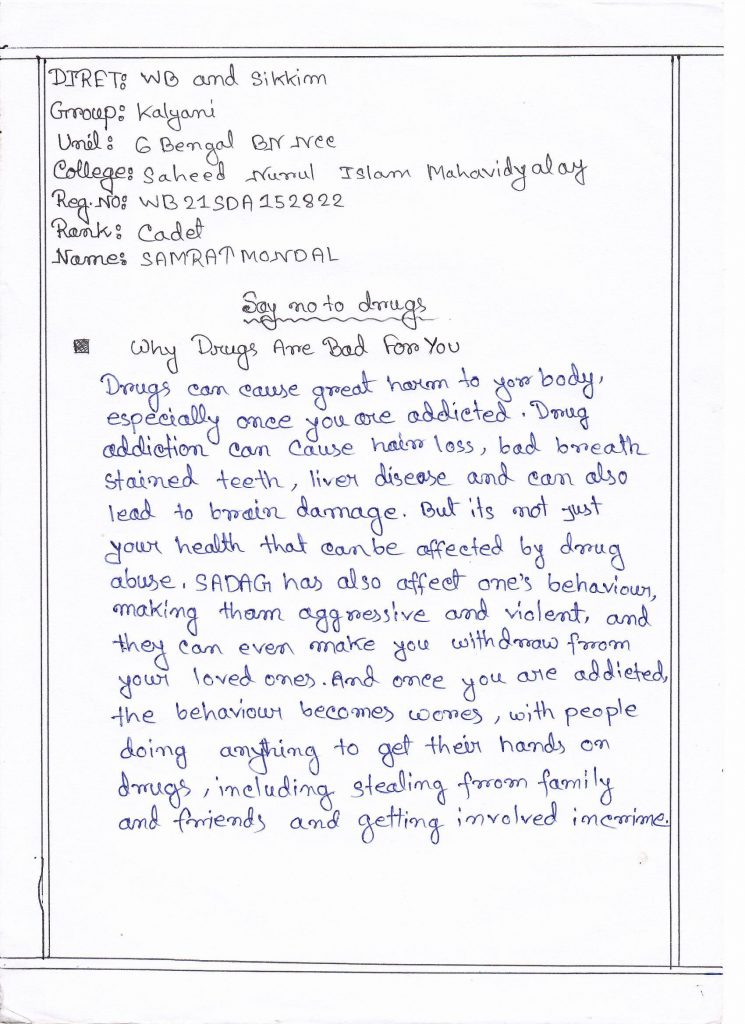 DIRET: WB and Sikkim
Group: Kalyani
Unil: 6 Bengal BN NCC
College: Saheed Nurul Islam Mahavidyalay
Reg.NO: WB21SDA152822
Rank: Cadet
Name: SAMRAT MONDAL
Say no to drugs
Why Drugs Are Bad For You
Drugs can cause great harm to your body,
especially once you are addicted. Drug
addiction can cause hair loss, bad breath
stained teeth, liver disease and can also
lead to brain damage. But its not just
your health that canbe affected by drug
abuse. SADAG has also affect one's behaviour,
making tham aggressive and violent, and
they can even make you withdraw from
your loved ones. And once you are addicted,
the behaviour becomes wores, with people
doing anything to get their hands on
drugs, including stealing from family
and friends and getting involved incrime.